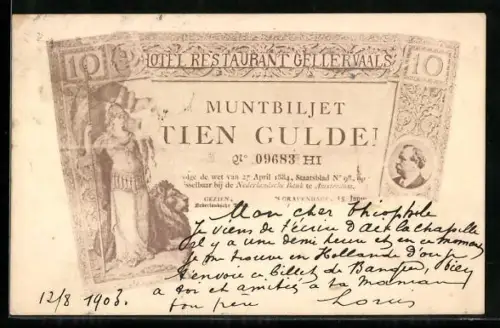 10 HOTEL RESTAURANT GELLERVAALS 10
MUNTBILJET
TIEN GULDE
Nº 09683 HI
olge de wet van 27 April 1884, Staatsblad Nº 98,
isselbaar bij de Nederlandsche Bank te Amsterdam.
GEZIEN, 'S GRAVENHAGE, 15
Nederlandsche
Mon cher Théophile
Je viens de t'écrire d'Aix la chapelle
il y a une demi heure et en ce moment
je me trouve en Hollande d'où je
t'envoie ce billet de Banque, Bien
a toi et amitiés à ta maman
ton père
12/8 1903.